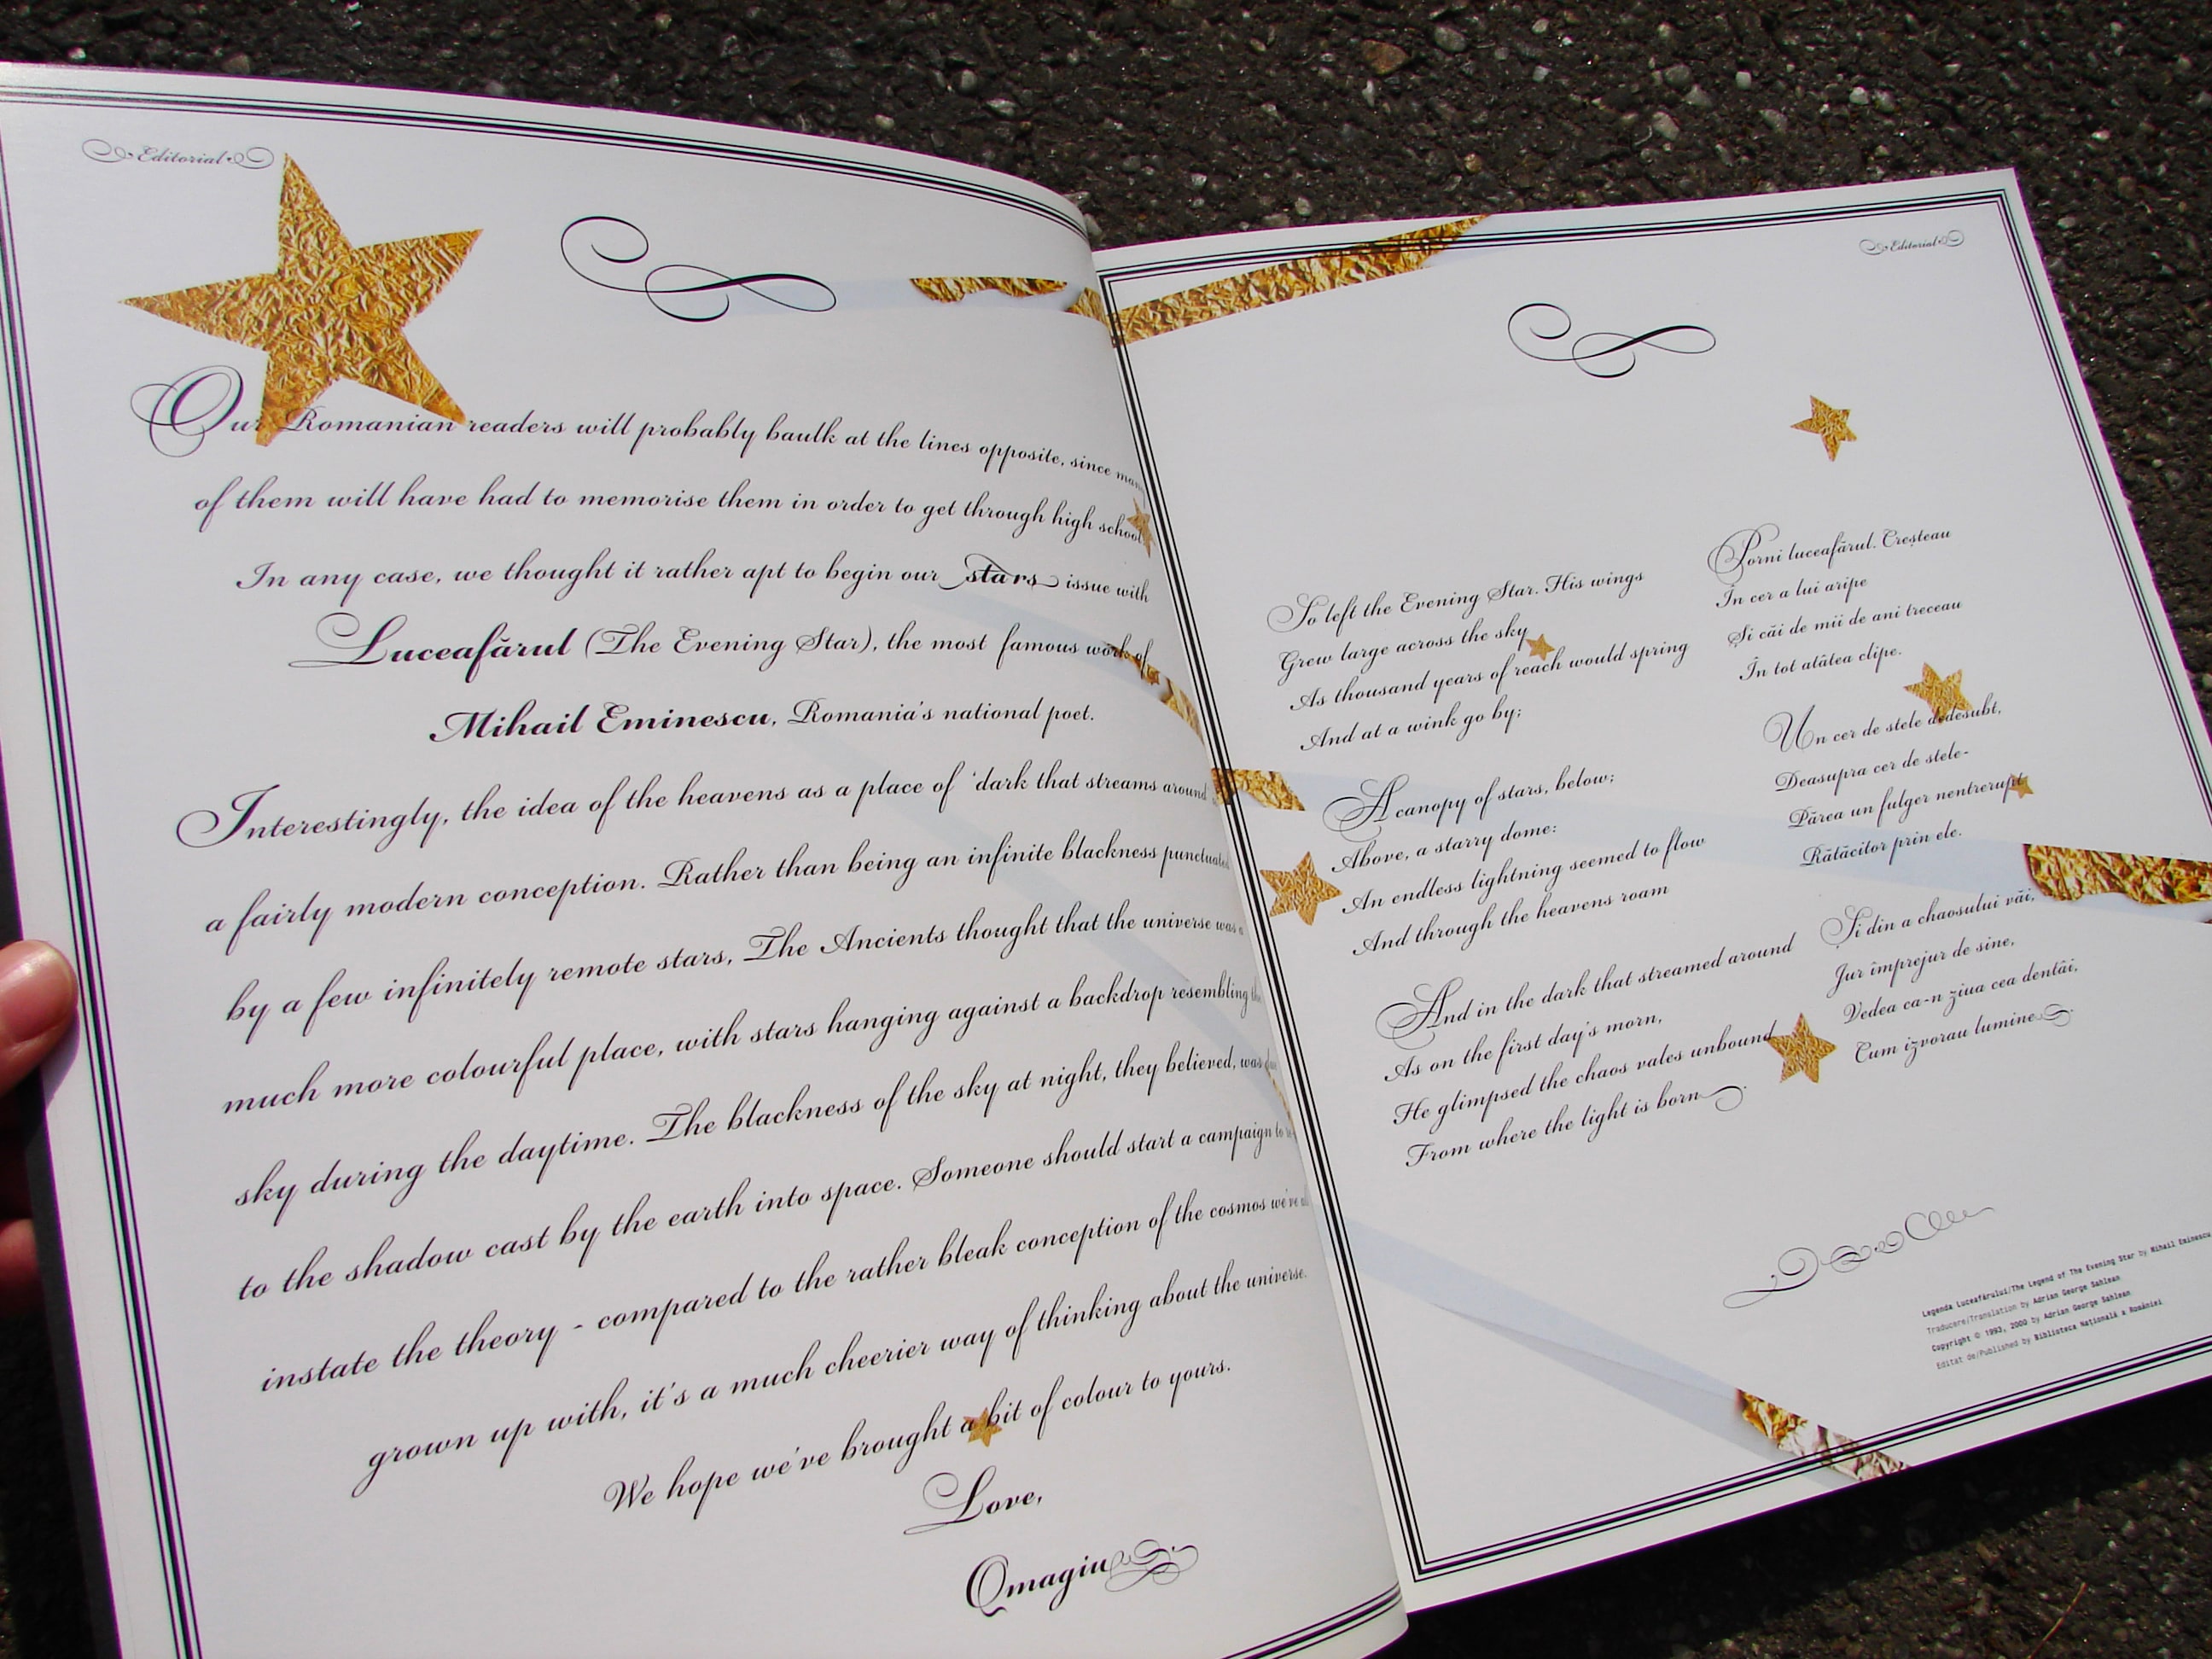 Editorial
Our Romanian readers will probably baulk at the lines opposite, since
of them will have had to memorise them in order to get through high school.
In any case, we thought it rather apt to begin our stars issue with
Luceafărul (The Evening Star), the most famous work of
Mihail Eminescu, Romania's national poet.
Interestingly, the idea of the heavens as a place of 'dark that streams around
a fairly modern conception. Rather than being an infinite blackness punctuated
by a few infinitely remote stars, The Ancients thought that the universe was a
much more colourful place, with stars hanging against a backdrop resembling
sky during the daytime. The blackness of the sky at night, they believed, was
to the shadow cast by the earth into space. Someone should start a campaign to
instate the theory - compared to the rather bleak conception of the cosmos we've
grown up with, it's a much cheerier way of thinking about the universe.
We hope we've brought a bit of colour to yours.
Love,
Omagiu
Editorial
So left the Evening Star. His wings
Grew large across the sky
As thousand years of reach would spring
And at a wink go by;
A canopy of stars, below;
Above, a starry dome:
An endless lightning seemed to flow
And through the heavens roam
And in the dark that streamed around
As on the first day's morn,
He glimpsed the chaos vales unbound
From where the light is born
Porni luceafărul. Creșteau
În cer a lui aripe
Și căi de mii de ani treceau
În tot atâtea clipe.
Un cer de stele dedesubt,
Deasupra cer de stele-
Părea un fulger nentrerupt
Rătăcitor prin ele.
Și din a chaosului văi,
Jur împrejur de sine,
Vedea ca-n ziua cea dentâi,
Cum izvorau lumine
Legenda Luceafărului/The Legend of The Evening Star by Mihail Eminescu
Traducere/Translation by Adrian George Sahlean
Copyright © 1993, 2000 by Adrian George Sahlean
Editat de/Published by Biblioteca Națională a României